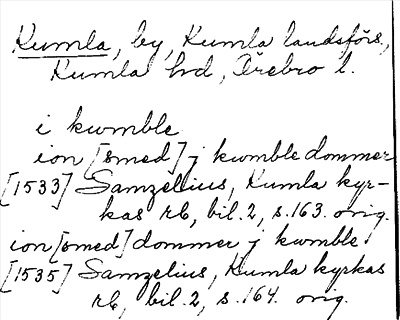 Kumla, by, Kumla landsförs,
Kumla hd, Örebro l.
i kwmble
ion [smed] j kwmble dommer
[1533] Samzelius, Kumla kyr-
kas rb, bil. 2, s. 163. orig.
ion [smed] dommer j kwmble
[1535] Samzelius, Kumla kyrkas
rb, bil. 2, s. 164. orig.